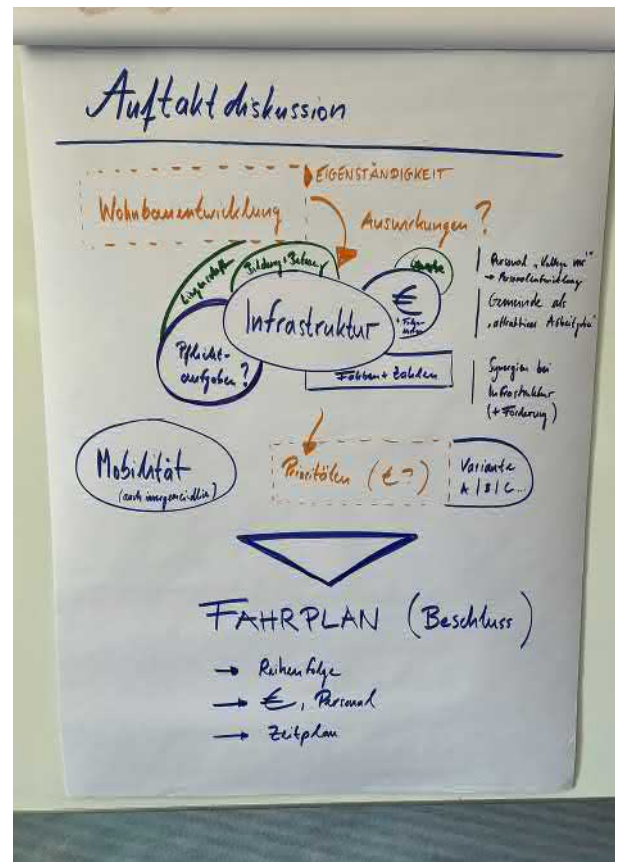 Auftaktdiskussion
EIGENSTÄNDIGKEIT
Wohnbauentwicklung
Auswirkungen ?
Liegenschaften
Bildung + Betreu
Infrastruktur
€
+ Folge-
Pflicht-
aufgaben ?
Fakten + Zahlen
Personal
→ Personalentwicklung
Gemeinde als
„attraktiver Arbeitgeber“
Synergien bei
Infrastruktur
(+ Förderung)
Mobilität
(auch innergemeindlich)
Prioritäten (€ ?)
Variante
A | B | C ...
FAHRPLAN (Beschluss)
→ Reihenfolge
→ €, Personal
→ Zeitplan